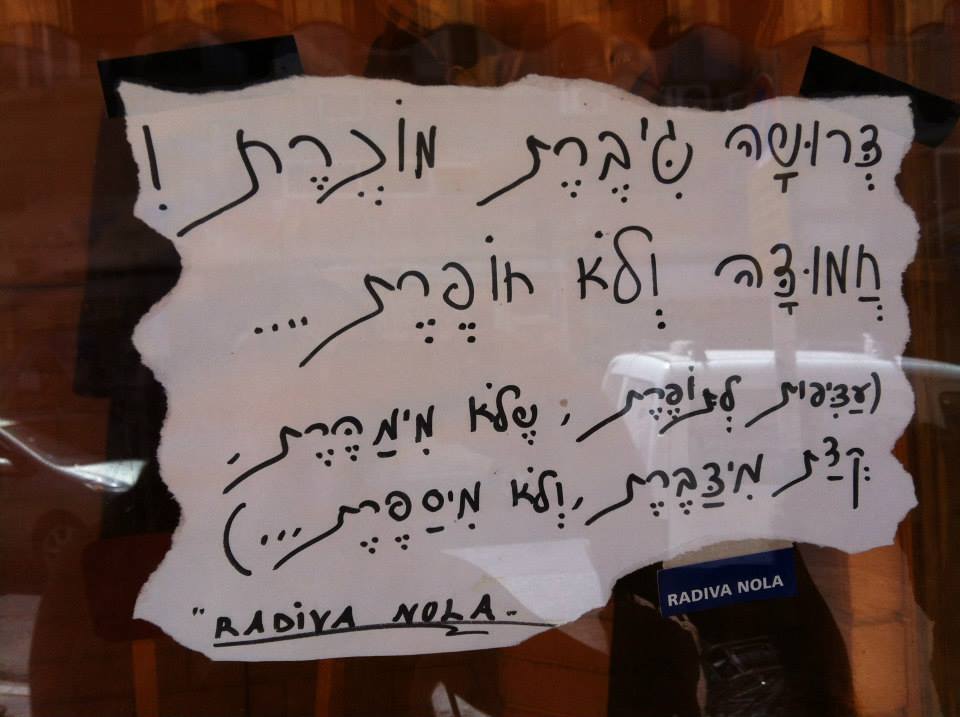 דְּרוּשָׁה גִּיבֶרֶת מוֹכֶרֶת !
חֲמוּדָּה וְלֹא חוֹפֶרֶת ....
(עַדִיפוּת לְתוֹפֶרֶת , שֶלֹא מִימַהֶרֶת,
קְצַת מִידַּבֶּרֶת ,וְלֹא מִיסַפֶּרֶת ...)
"RADIVA NOLA"
RADIVA NOLA